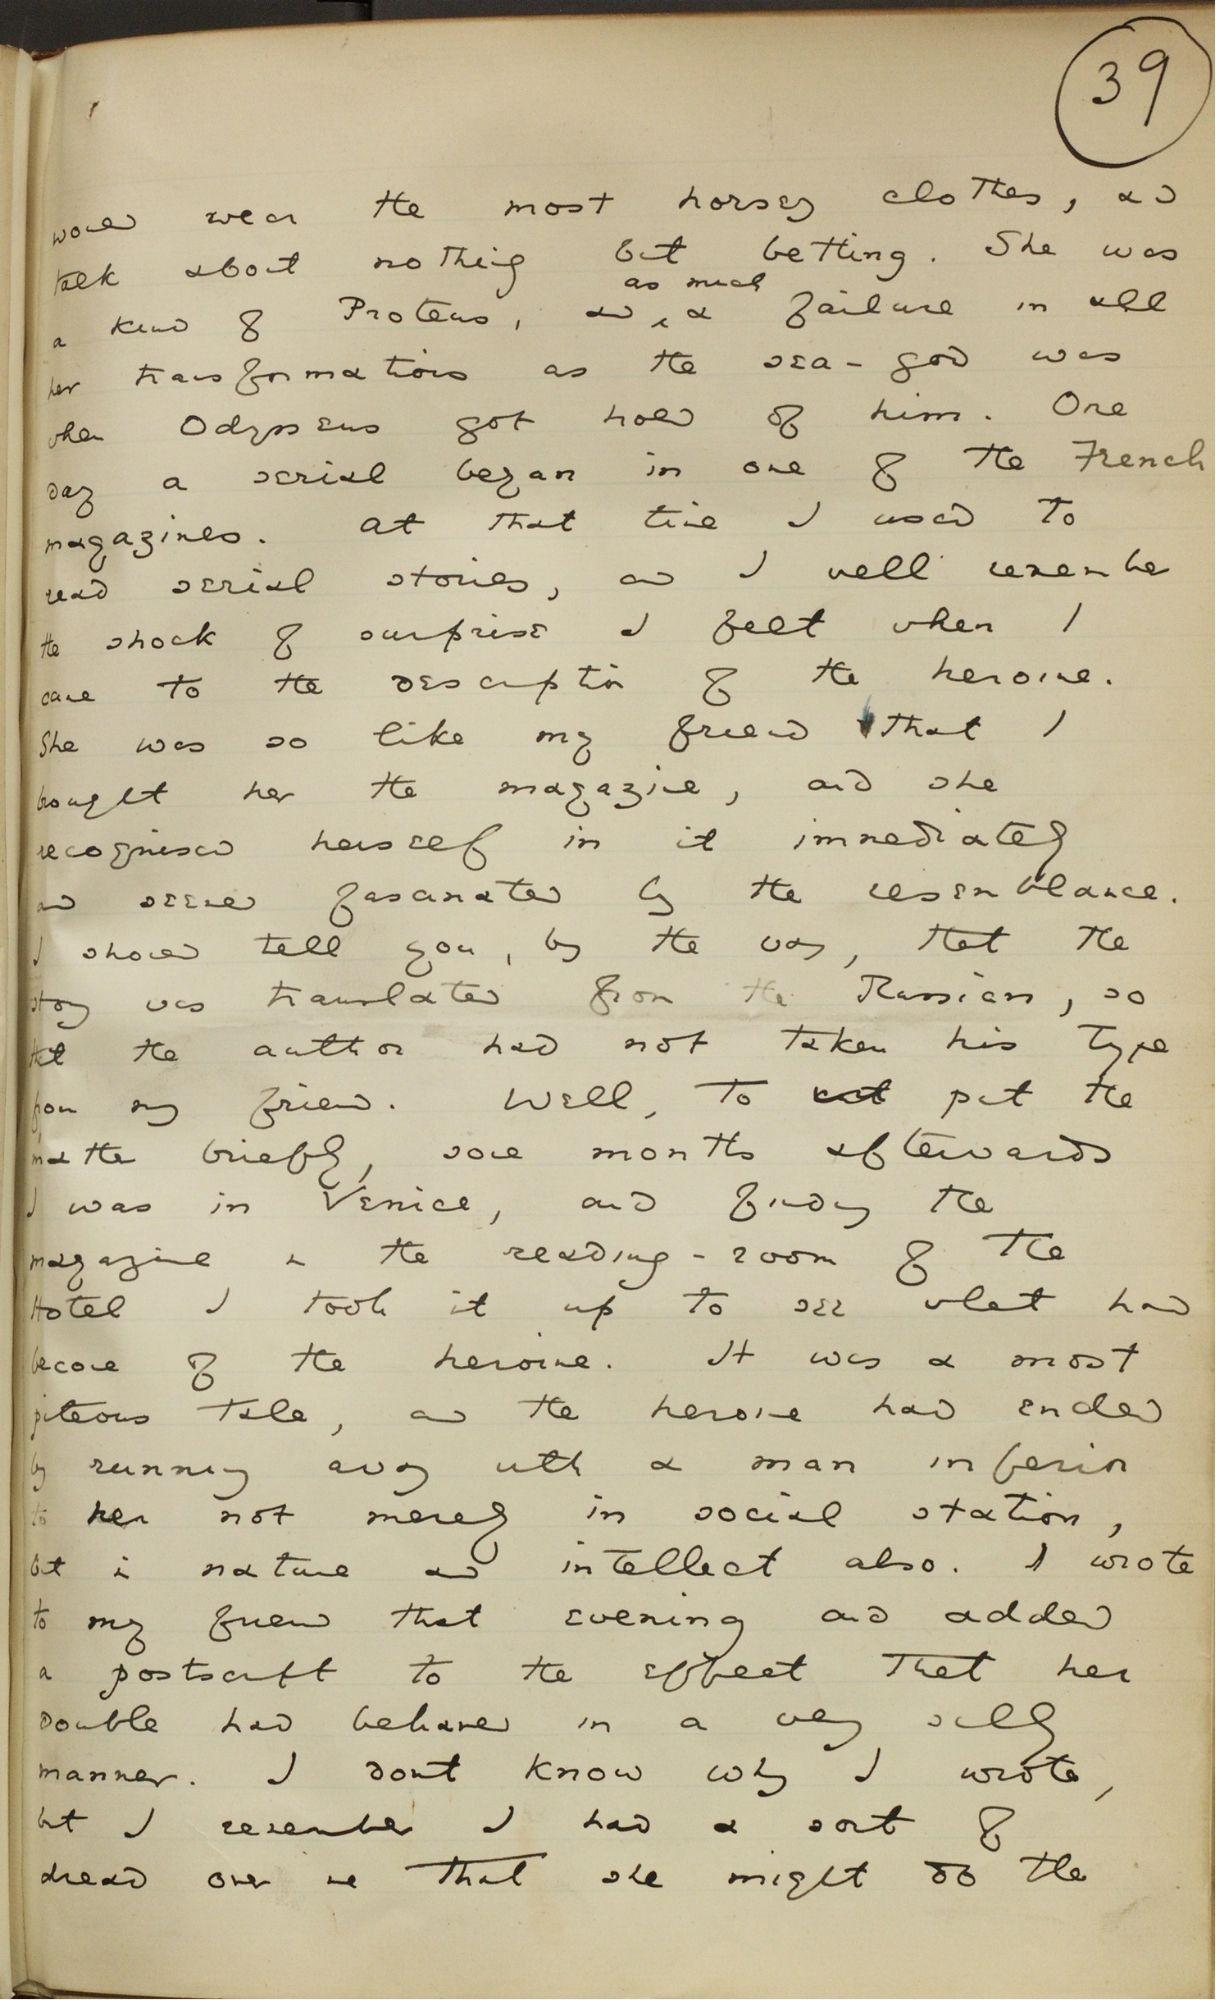 39
would wear the most horsey clothes, and
talk about nothing but betting. She was
as much
a kind of Proteus, and a failure in all
her transformations as the sea-god was
when Odysseus got hold of him. One
day a serial began in one of the French
magazines. At that time I used to
read serial stories, and I well remember
the shock of surprise I felt when I
came to the description of the heroine.
She was so like my friend that I
brought her the magazine, and she
recognised herself in it immediately
and seemed fascinated by the resemblance.
I should tell you, by the way, that the
story was translated from the Russian, so
that the author had not taken his type
from my friend. Well, to put the
matter briefly, some months afterwards
I was in Venice, and finding the
magazine in the reading-room of the
Hotel I took it up to see what had
become of the heroine. It was a most
piteous tale, as the heroine had ended
by running away with a man inferior
to her not merely in social station,
but in nature and intellect also. I wrote
to my friend that evening and added
a postscript to the effect that her
double had behaved in a very silly
manner. I dont know why I wrote,
but I remember I had a sort of
dread over me that she might do the